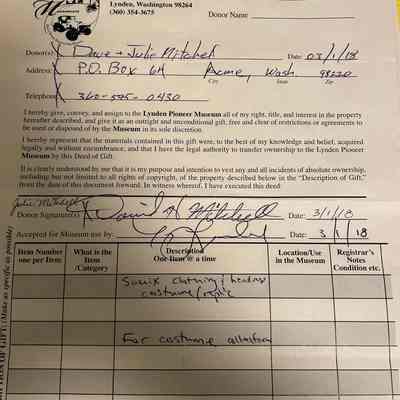 Lynden, Washington 98264
(360) 354-3675
Donor Name
Donor(s) Dave + Julie Mitchell Date: 03/1/18
Address: P.O. Box 64 Acme, Wash. 98220
City State Zip
Telephone 360-595-0430
I hereby give, convey, and assign to the Lynden Pioneer Museum all of my right, title, and interest in the property
hereafter described, and give it as an outright and unconditional gift, free and clear of restrictions or agreements to
be used or disposed of by the Museum in its sole discretion.
I hereby represent that the materials contained in this gift were, to the best of my knowledge and belief, acquired
legally and without encumbrance, and that I have the legal authority to transfer ownership to the Lynden Pioneer
Museum by this Deed of Gift.
It is clearly understood by me that it is my purpose and intention to vest any and all incidents of absolute ownership,
including but not limited to all rights of copyright, of the property described below in the “Description of Gift,”
from the date of this document forward. In witness whereof, I have executed this deed
Julie Mitchell
Donor Signature(s) David Mitchell Date: 3/1/18
Accepted for Museum use by: Date: 3/1/18
Item Number one per Item
What is the Item /Category
Description One Item @ a time
Location/Use in the Museum
Registrar's Notes Condition etc.
Souix clothing/
costume/
For costume
OF GIFT: (Make as specific as possible)